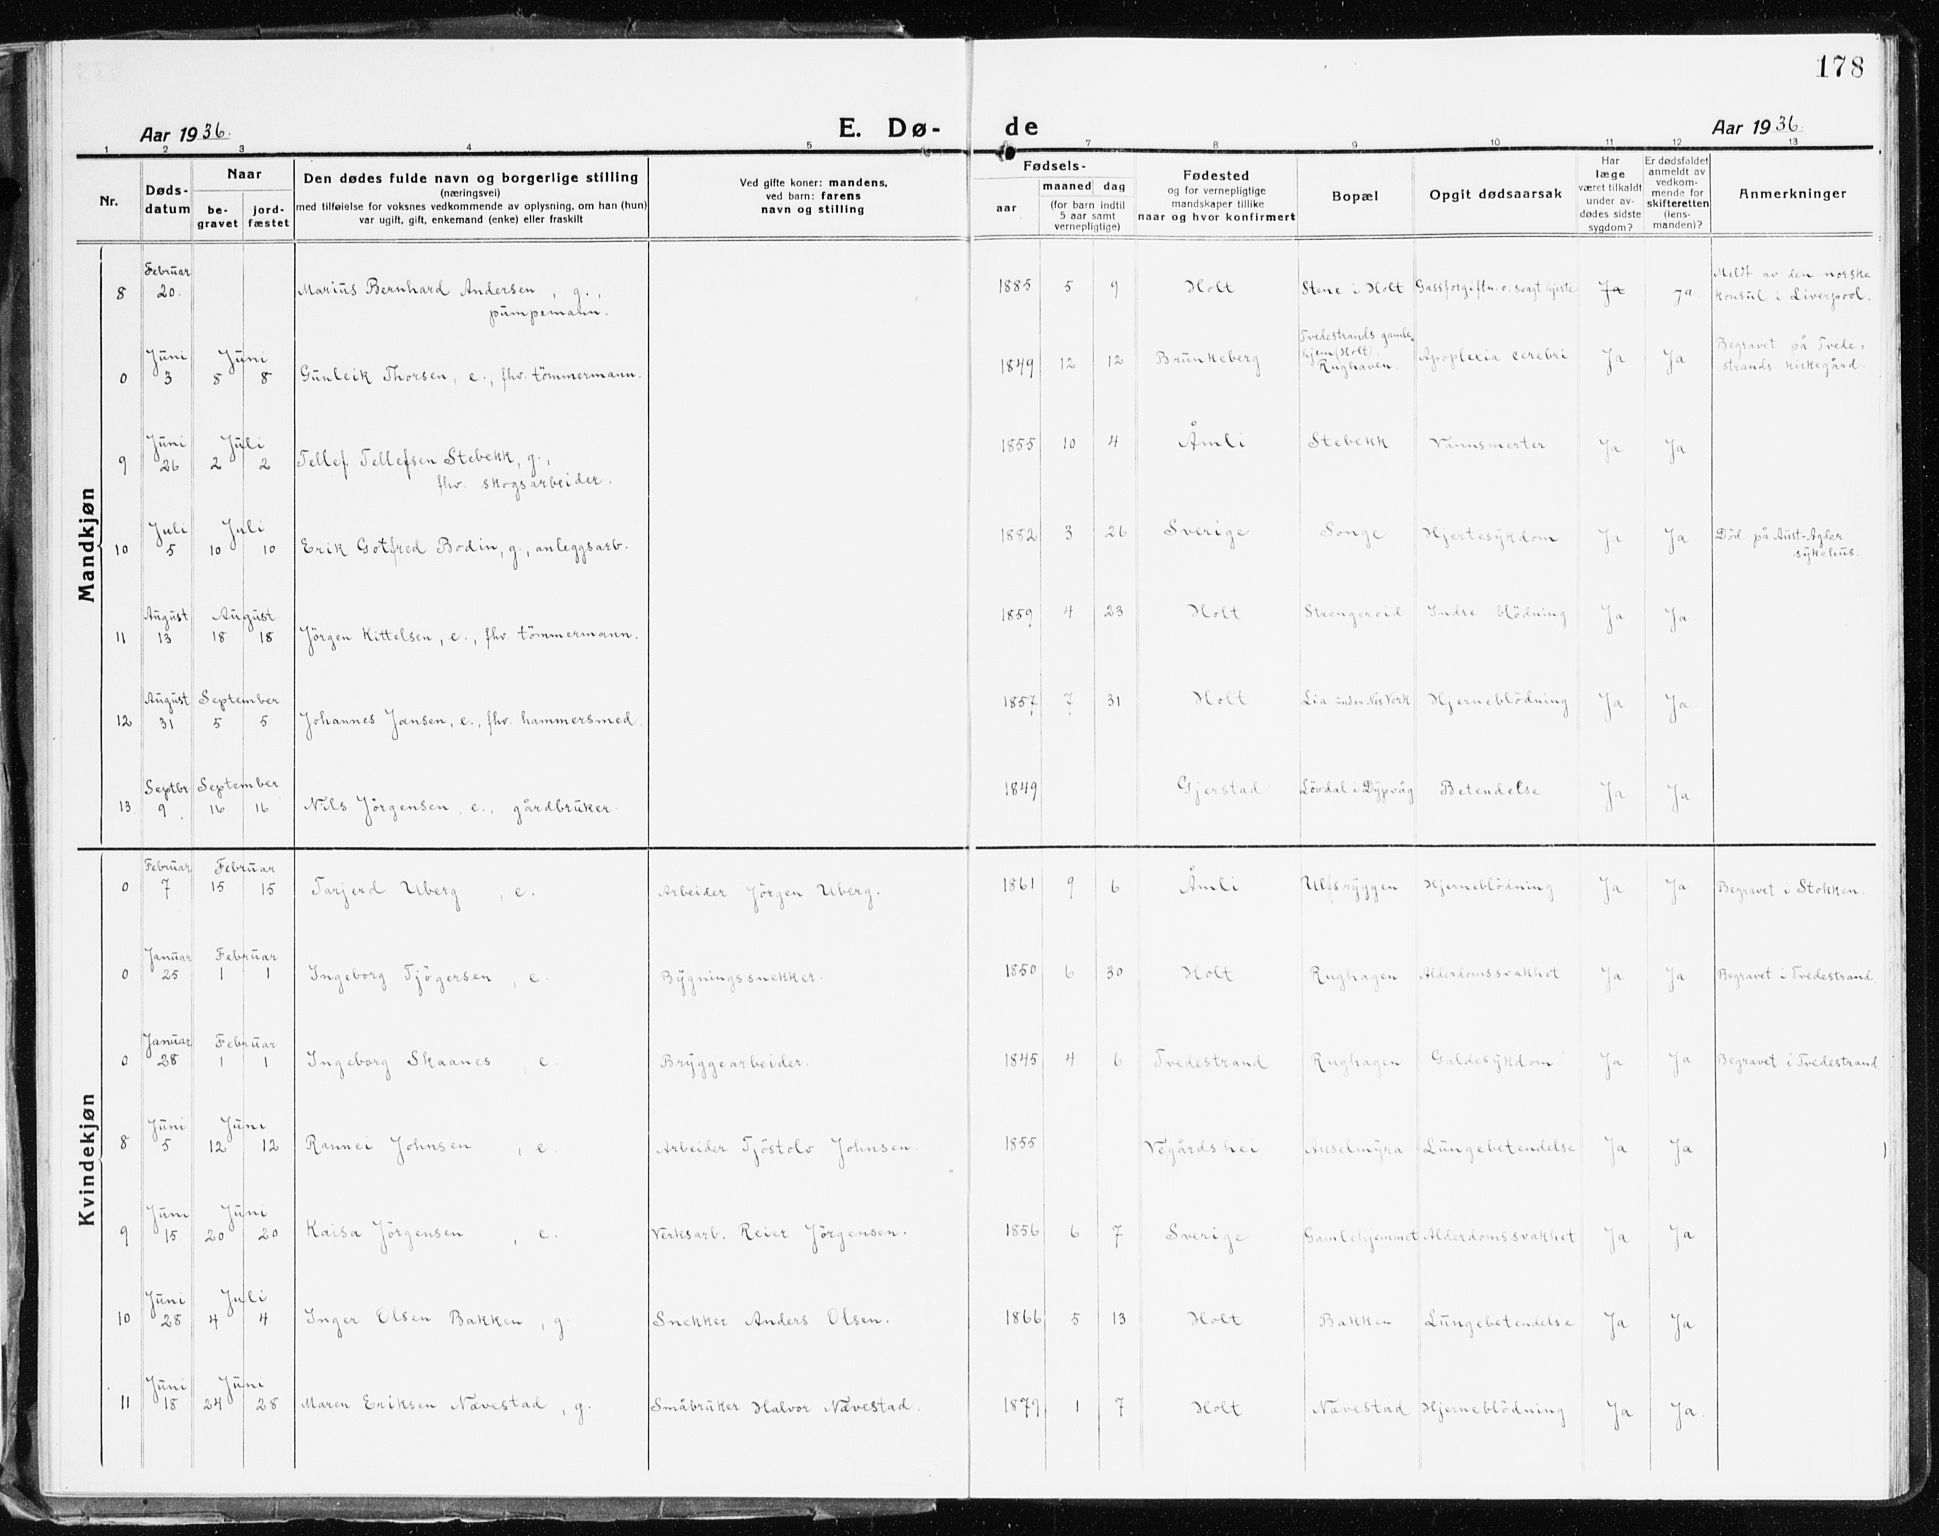 178
Aar 1936.
E. Dø-
de
Aar 1936.
1 2 3 4 5 6 7 8 9 10 11 12 13
Nr.
Døds-datum
Naar
be-gravet
jord-fæstet
Den dødes fulde navn og borgerlige stilling
(næringsvei)
med tilføielse for voksnes vedkommende av oplysning, om han (hun)
var ugift, gift, enkemand (enke) eller fraskilt
Ved gifte koner: mandens,
ved barn: farens
navn og stilling
Fødsels-
aar
maaned dag
(for barn indtil
5 aar samt
vernepligtige)
Fødested
og for vernepligtige
mandskaper tillike
naar og hvor konfirmert
Bopæl
Opgit dødsaarsak
Har
læge
været tilkaldt
under av-
dødes sidste
sygdom?
Er dødsfaldet
anmeldt av
vedkom-
mende for
skifteretten
(lens-
manden)?
Anmerkninger
Mandkjøn
8 Februar 20. Marius Bernhard Andersen, g., pumpemann. 1885 5 9 Holt Stene i Holt Gassforgiftn. o. svagt hjerte Ja Ja Meldt av den norske konsul i Liverpool.
0 Juni 3 Juni 8 8 Gunleik Thorsen, e., fhv. tömmermann. 1849 12 12 Brunkeberg Tvedestrands gamlehjem (Holt). Rughaven. Apoplexia cerebri Ja Ja Begravet på Tvedestrands kirkegård.
9 Juni 26 Juli 2 2 Tellef Tellefsen Stebekk, g., fhv. skogsarbeider. 1855 10 4 Åmli Stebekk Vannsmerter Ja Ja
10 Juli 5 Juli 10 10 Erik Gotfred Bodin, g., anleggsarb. 1882 3 26 Sverige Songe Hjertesykdom Ja Ja. Död på Aust-Agder sykehus.
11 August 13 August 18 18 Jörgen Kittelsen, e., fhv. tömmermann. 1859 4 23 Holt Strengereid Indre blödning Ja Ja.
12 August 31 September 5 5 Johannes Jansen, e., fhv. hammersmed. 1857 7 31 Holt Lia under Nes Verk Hjerneblödning Ja Ja.
13 Septbr. 9 September 16 16 Nils Jörgensen, e., gårdbruker. 1849 Gjerstad Lövdal i Dypvåg Betendelse Ja Ja.
Kvindekjøn
0 Februar 7 Februar 15 15 Tarjerd Uberg, e. Arbeider Jörgen Uberg. 1861 9 6 Åmli Ulfsryggen Hjerneblödning Ja Ja Begravet i Stokken.
0 Januar 25 Februar 1 1 Ingeborg Tjögersen, e. Bygningssnekker. 1850 6 30 Holt Rughagen Alderdomssvakhet Ja Ja Begravet i Tvedestrand.
0 Januar 28 Februar 1 1 Ingeborg Skaanes, e. Bryggearbeider. 1845 4 6 Tvedestrand Rughagen Galdesykdom Ja Ja Begravet i Tvedestrand
8 Juni 5 Juni 12 12 Rannei Johnsen, e. Arbeider Tjöstolv Johnsen. 1855 Vegårdshei Auselmyra Lungebetendelse Ja Ja
9 Juni 15 Juni 20 20 Kaisa Jörgensen, e. Verksarb. Reier Jörgensen. 1856 6 7 Sverige Gamlehjemmet Alderdomssvakhet Ja Ja
10 Juni 28 Juli 4 4 Inger Olsen Bakken, g. Snekker Anders Olsen. 1866 5 13 Holt Bakken Lungebetendelse Ja Ja
11 Juni 18 Juni 24 28 Maren Eriksen Nævestad, g. Småbruker Halvor Nævestad. 1879 1 7 Holt Nævestad Hjerneblödning Ja Ja.